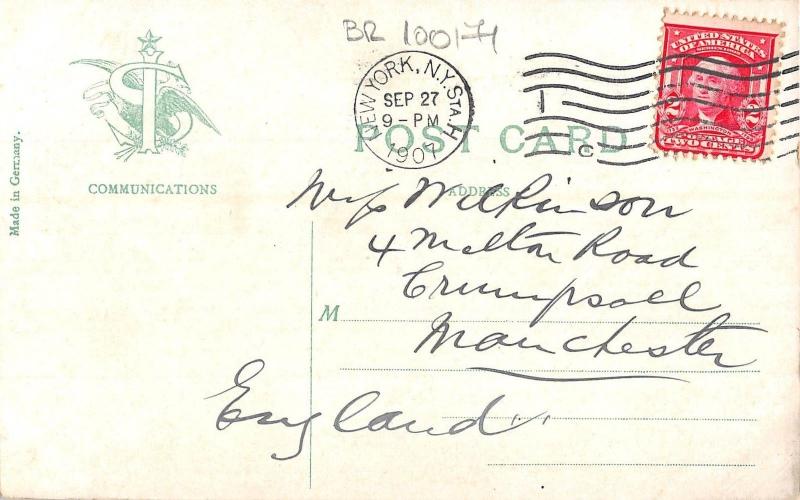 BR 10017H
NEW YORK, N.Y. STA. H
SEP 27
9-PM
1907
C
UNITED STATES
OF AMERICA
SERIES 1902
2 2
WASHINGTON
POSTAGE
TWO CENTS
POST CARD
Made in Germany.
COMMUNICATIONS
ADDRESS
Miss Wilkinson
4 Melton Road
Crumpsall
M
Manchester
England